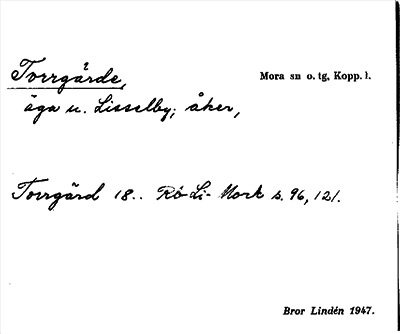 Torrgårde,
Mora sn o. tg, Kopp. l.
äga u. Lisselby; åker,
Torrgård 18.. Rö-Li- Mork s. 96, 121.
Bror Lindén 1947.